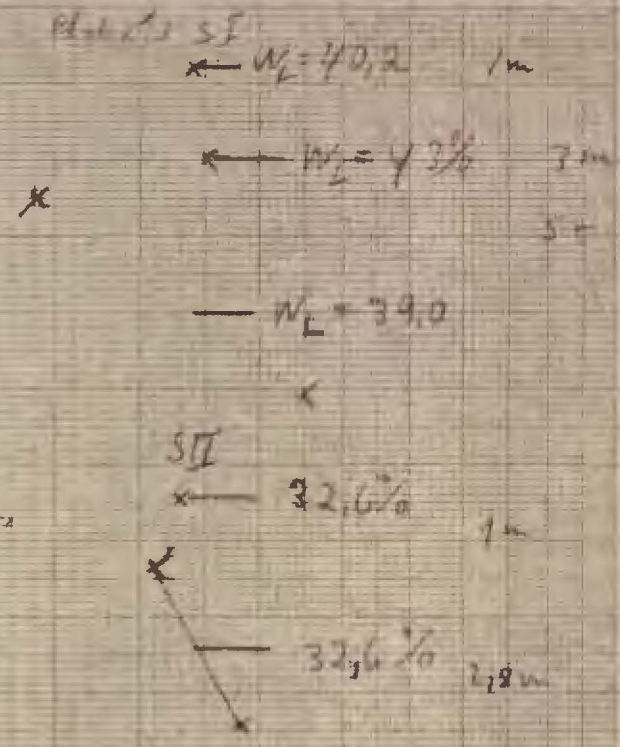 SI
W_L = 40,2 1m
W_L = 43% 3m
5
W_L = 39,0
SII
32,6%
1m
32,6% 2,8m